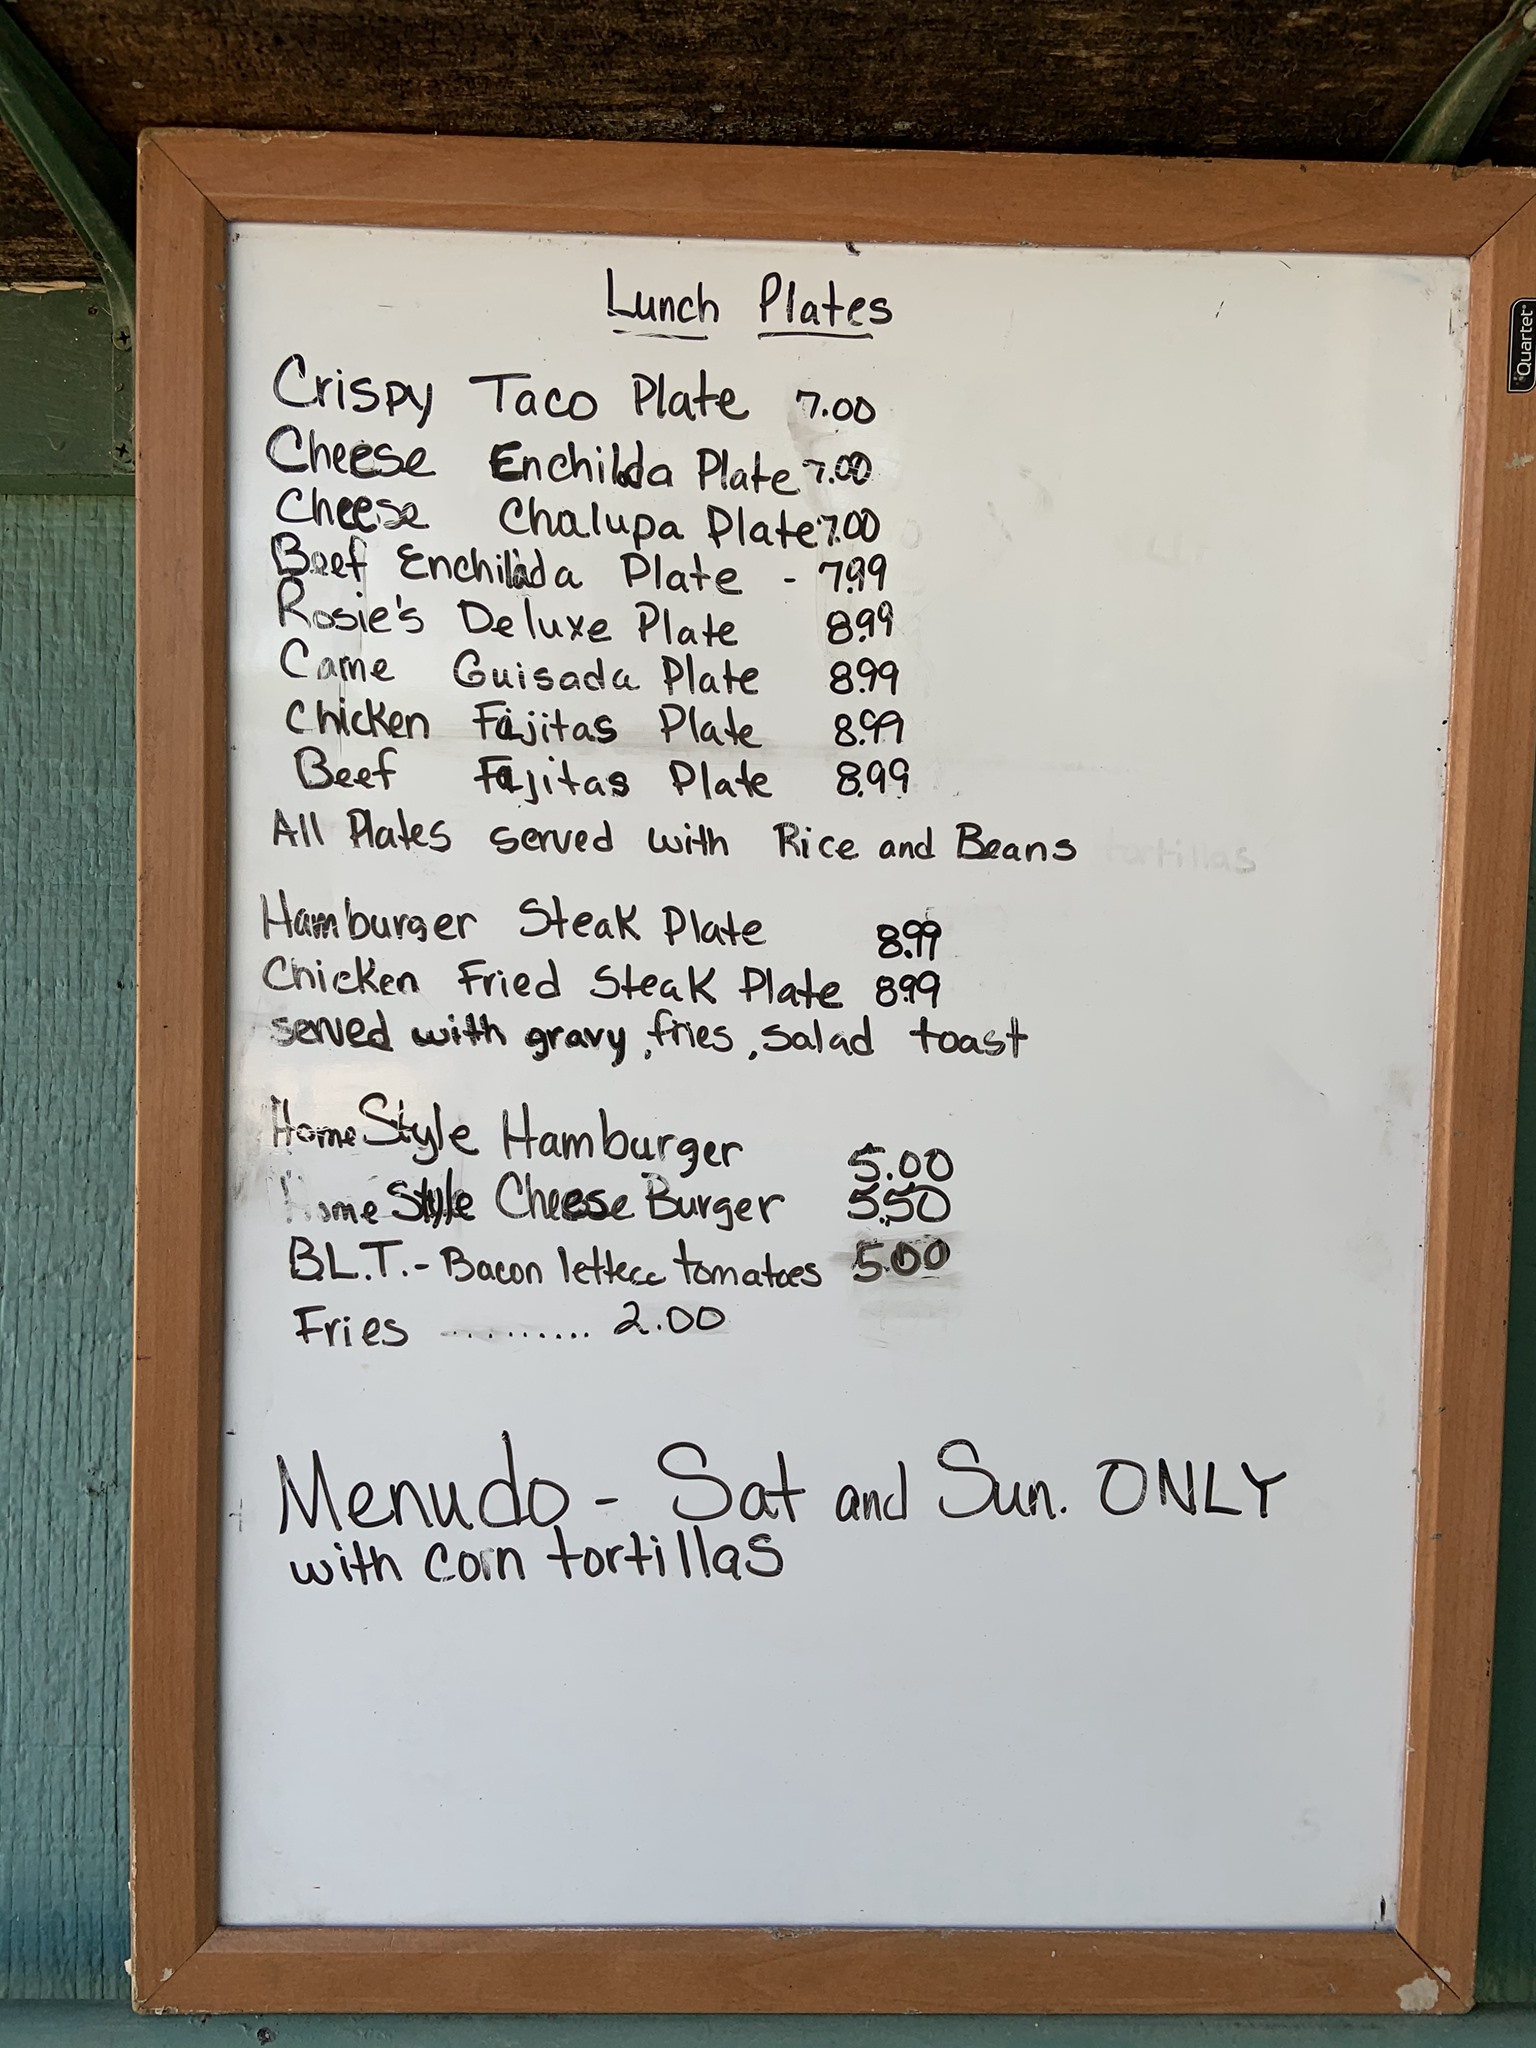 Lunch Plates
Quartet
Crispy Taco Plate 7.00
Cheese Enchilda Plate 7.00
Cheese Chalupa Plate 7.00
Beef Enchilada Plate - 7.99
Rosie's Deluxe Plate 8.99
Carne Guisada Plate 8.99
Chicken Fajitas Plate 8.99
Beef Fajitas Plate 8.99
All Plates served with Rice and Beans tortillas
Hamburger Steak Plate 8.99
Chicken Fried Steak Plate 8.99
served with gravy, fries, salad toast
Home Style Hamburger 5.00
Home Style Cheese Burger 5.50
B.L.T. - Bacon lettecc tomatoes 5.00
Fries .......... 2.00
Menudo - Sat and Sun. ONLY
with corn tortillas